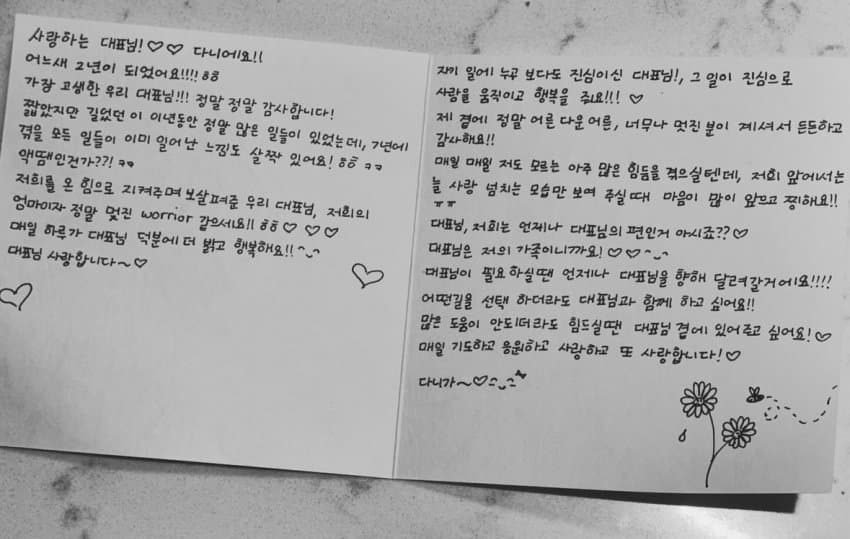 사랑하는 대표님! ♡♡ 다니에요!!
어느새 2년이 되었어요!!!! ㅎㅎ
가장 고생한 우리 대표님!!! 정말 정말 감사합니다!
짧았지만 길었던 이 이년동안 정말 많은 일들이 있었는데, 7년에
겪을 모든 일들이 이미 일어난 느낌도 살짝 있어요! ㅎㅎ ㅋㅋ
액땜인건가??! ㅋㅋ
저희를 온 힘으로 지켜주며 보살펴준 우리 대표님, 저희의
엄마이자 정말 멋진 worrior 같으세요!! ㅎㅎ ♡ ♡ ♡
매일 하루가 대표님 덕분에 더 밝고 행복해요!! ^◡^
대표님 사랑합니다~♡
자기 일에 누구 보다도 진심이신 대표님!, 그 일이 진심으로
사람을 움직이고 행복을 줘요!!! ♡
제 곁에 정말 어른 다운 어른, 너무나 멋진 분이 계셔서 든든하고
감사해요!!
매일 매일 저도 모르는 아주 많은 힘듬을 겪으실텐데, 저희 앞에서는
늘 사랑 넘치는 모습만 보여 주실 때 마음이 많이 아프고 찡해요!!
ㅠㅠ
대표님, 저희는 언제나 대표님의 편인거 아시죠?? ♡
대표님은 저의 가족이니까요! ♡♡ ^◡^
대표님이 필요하실땐 언제나 대표님을 향해 달려갈거에요!!!!
어떤길을 선택 하더라도 대표님과 함께 하고 싶어요!!
많은 도움이 안되더라도 힘드실땐 대표님 곁에 있어주고 싶어요! ♡
매일 기도하고 응원하고 사랑하고 또 사랑합니다! ♡
다니가~♡